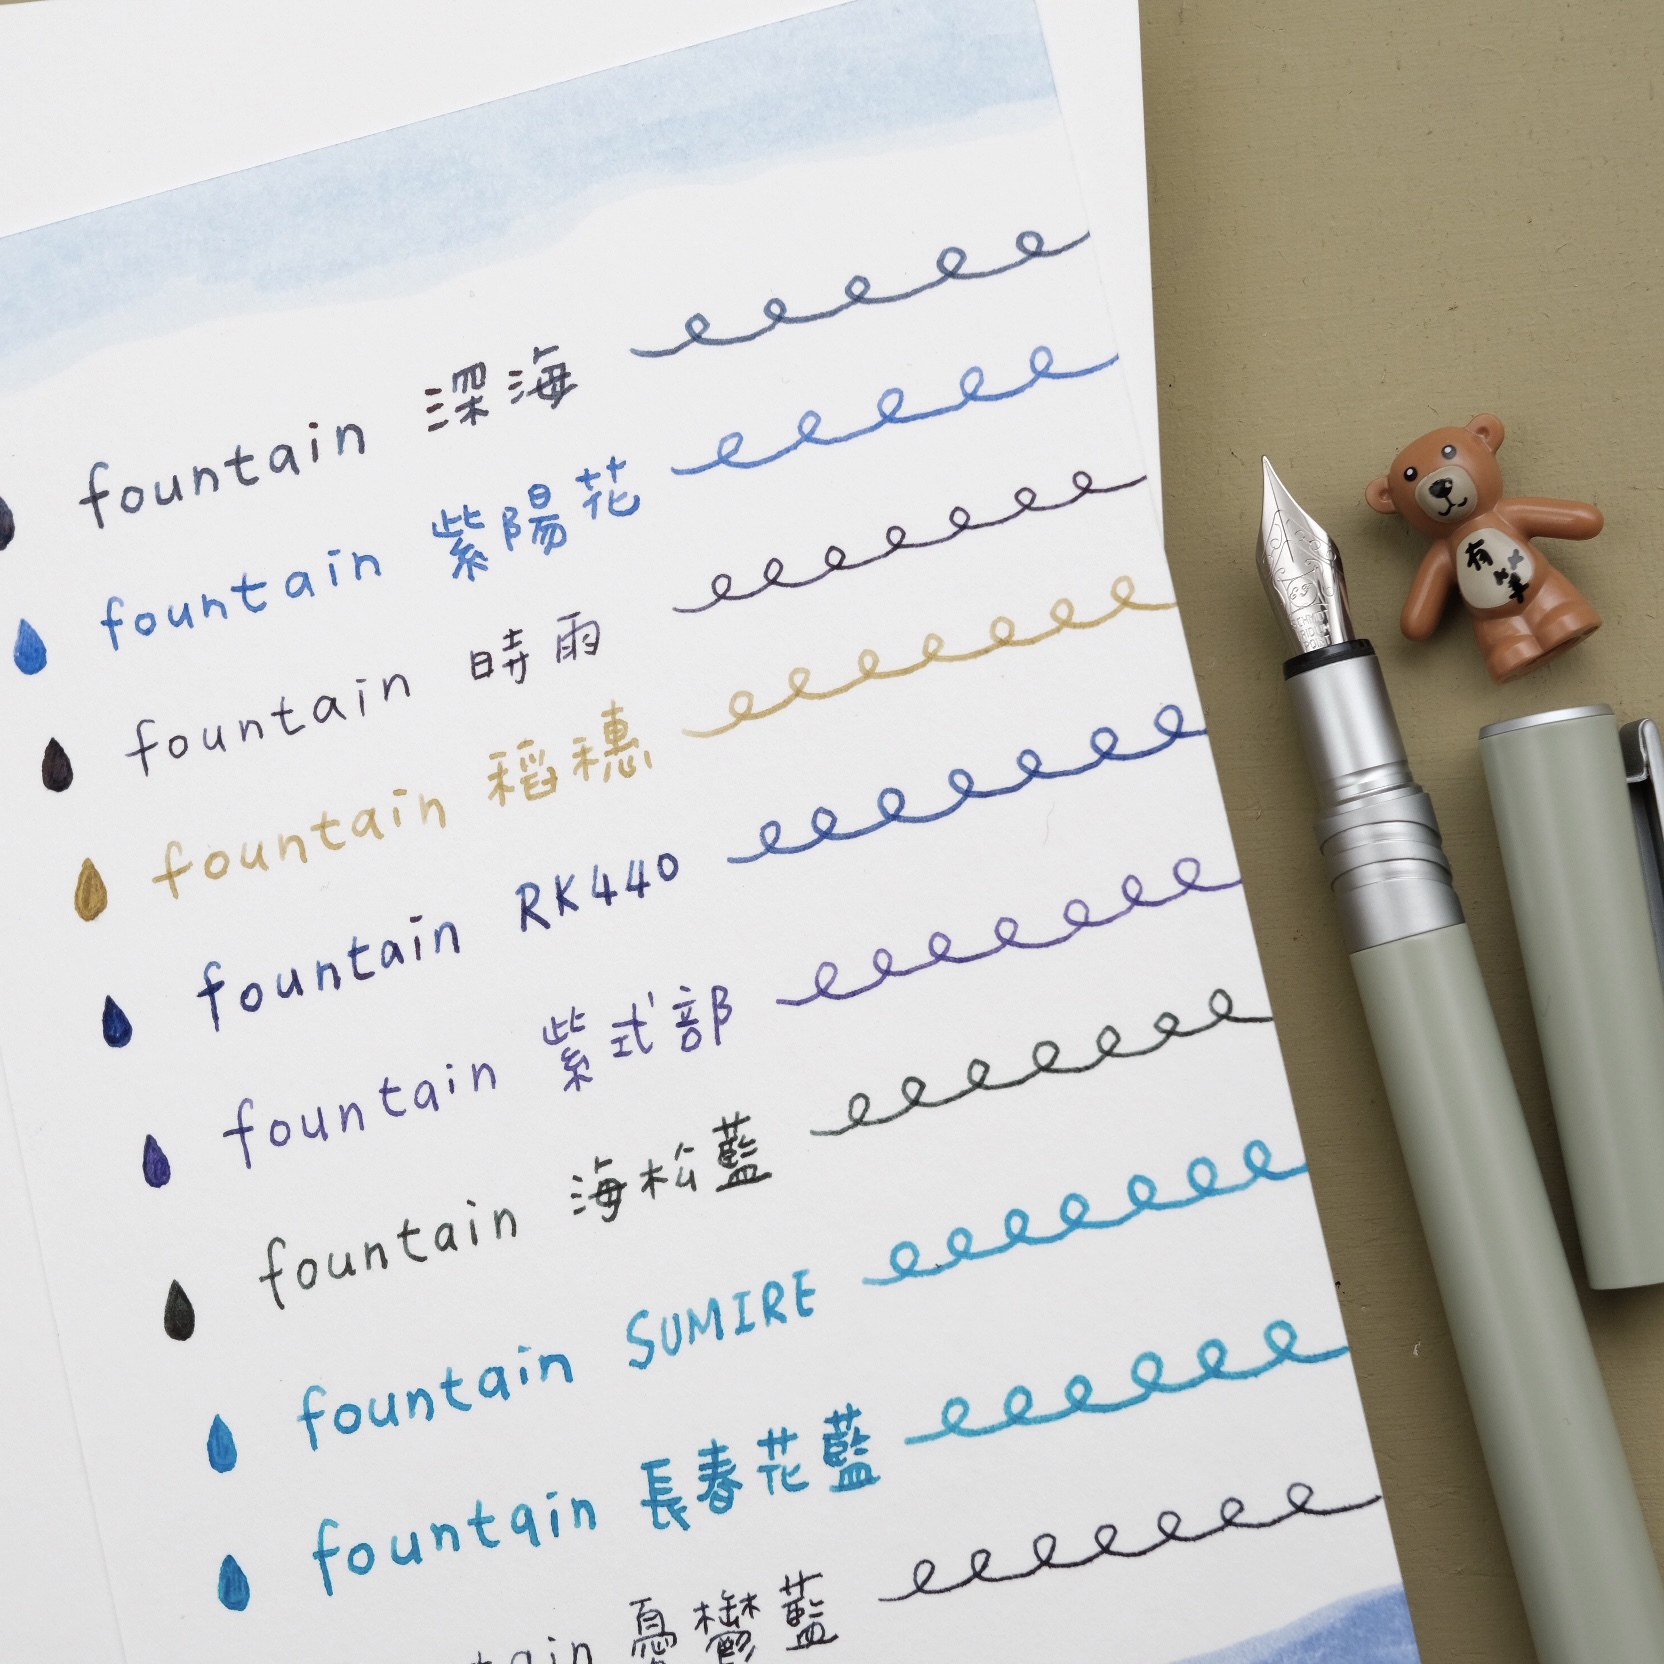 fountain 深海
fountain 紫陽花
fountain 時雨
fountain 稻穗
fountain RK440
fountain 紫式部
fountain 海松藍
fountain SUMIRE
fountain 長春花藍
tain 憂鬱藍
有
筆